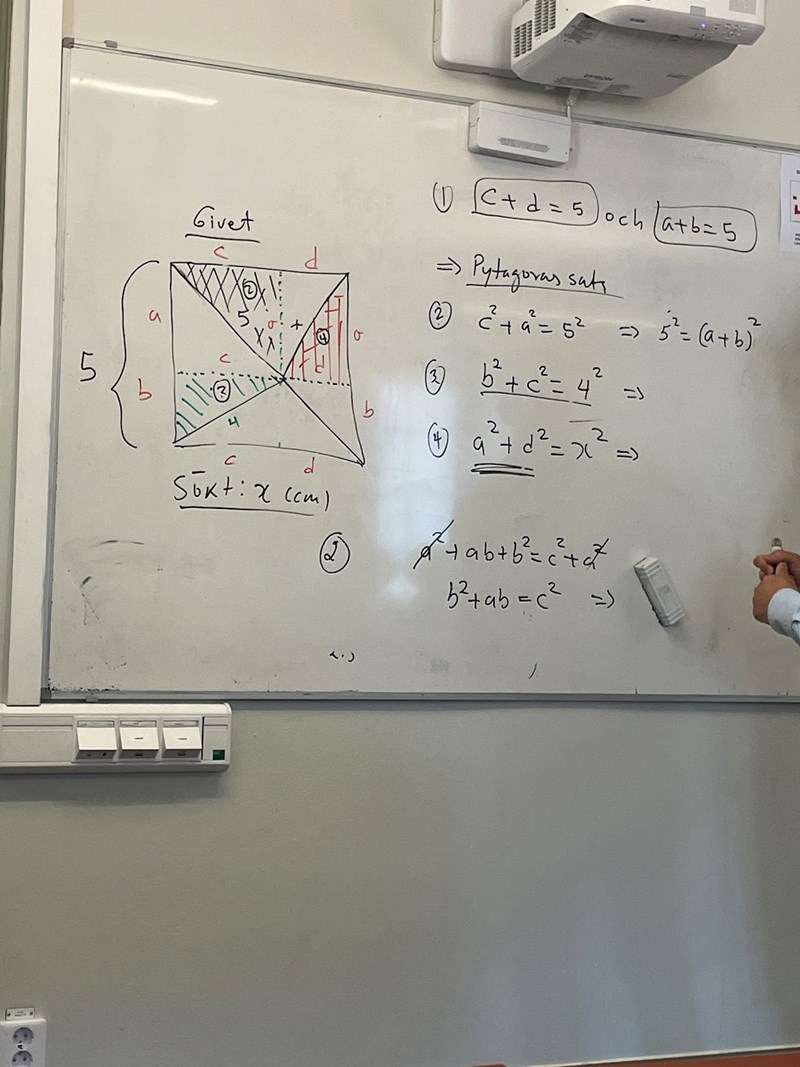 Givet
c d
a
5
b
c
②
5
a
x
④
a
d
c
③
4
b
c d
Sökt: x (cm)
① c + d = 5 och a+b = 5
=> Pytagoras sats
② c² + a² = 5² => 5² = (a+b)²
③ b² + c² = 4² =>
④ a² + d² = x² =>
② a² + ab + b² = c² + a²
b² + ab = c² =>
EPSON